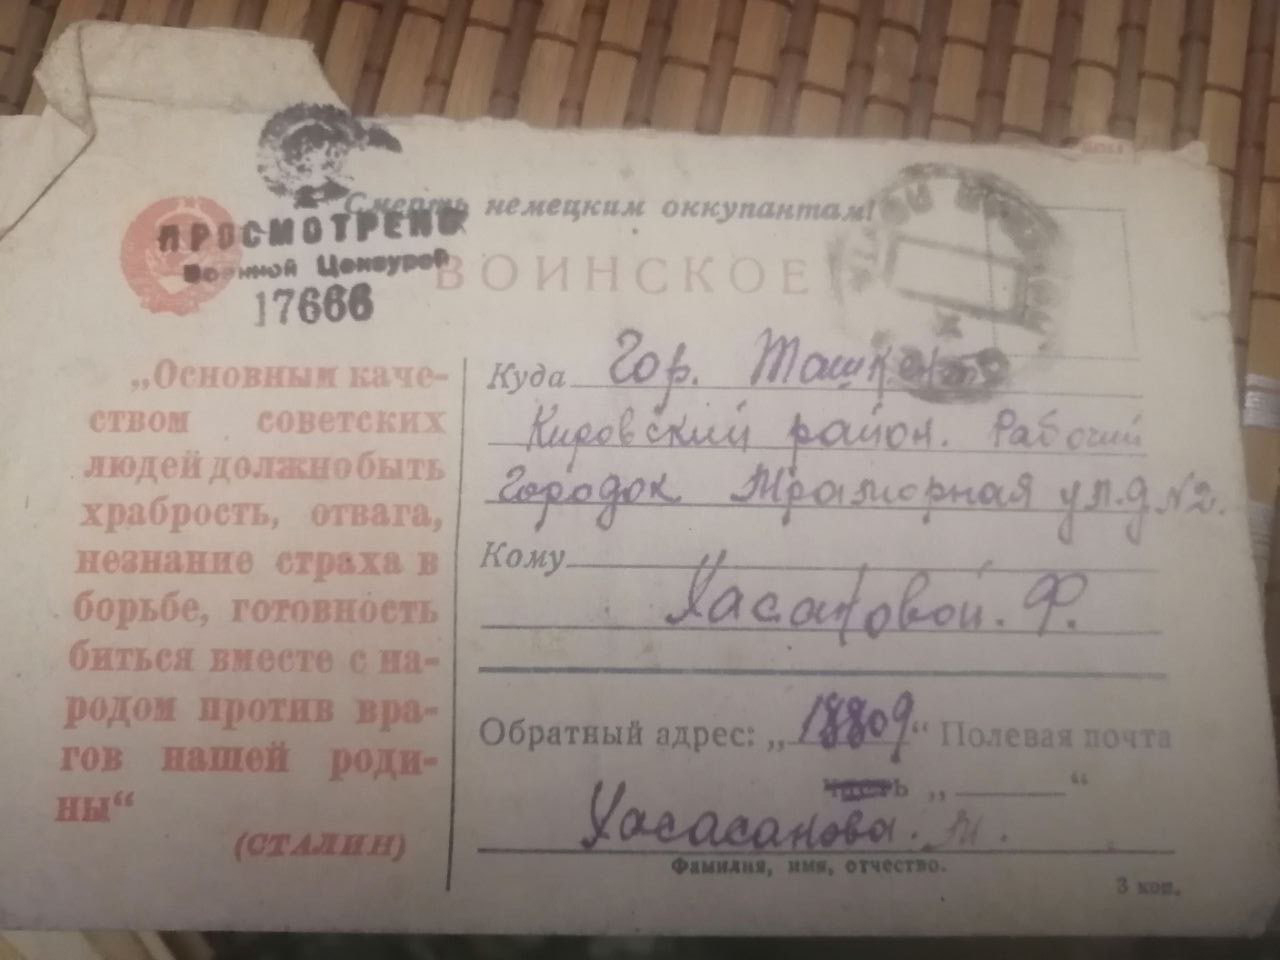 Смерть немецким оккупантам!
ПРОСМОТРЕНО
Военной Цензурой
17666
ВОИНСКОЕ
„Основным каче-
ством советских
людей должно быть
храбрость, отвага,
незнание страха в
борьбе, готовность
биться вместе с на-
родом против вра-
гов нашей роди-
ны“
(СТАЛИН)
Куда Гор. Ташкент
Кировский район. Рабочий
Городок Мраморная ул. д №2.
Кому
Хасановой. Ф.
Обратный адрес: „18809“ Полевая почта
„ “
Хасасанова. М.
Фамилия, имя, отчество.
3 коп.